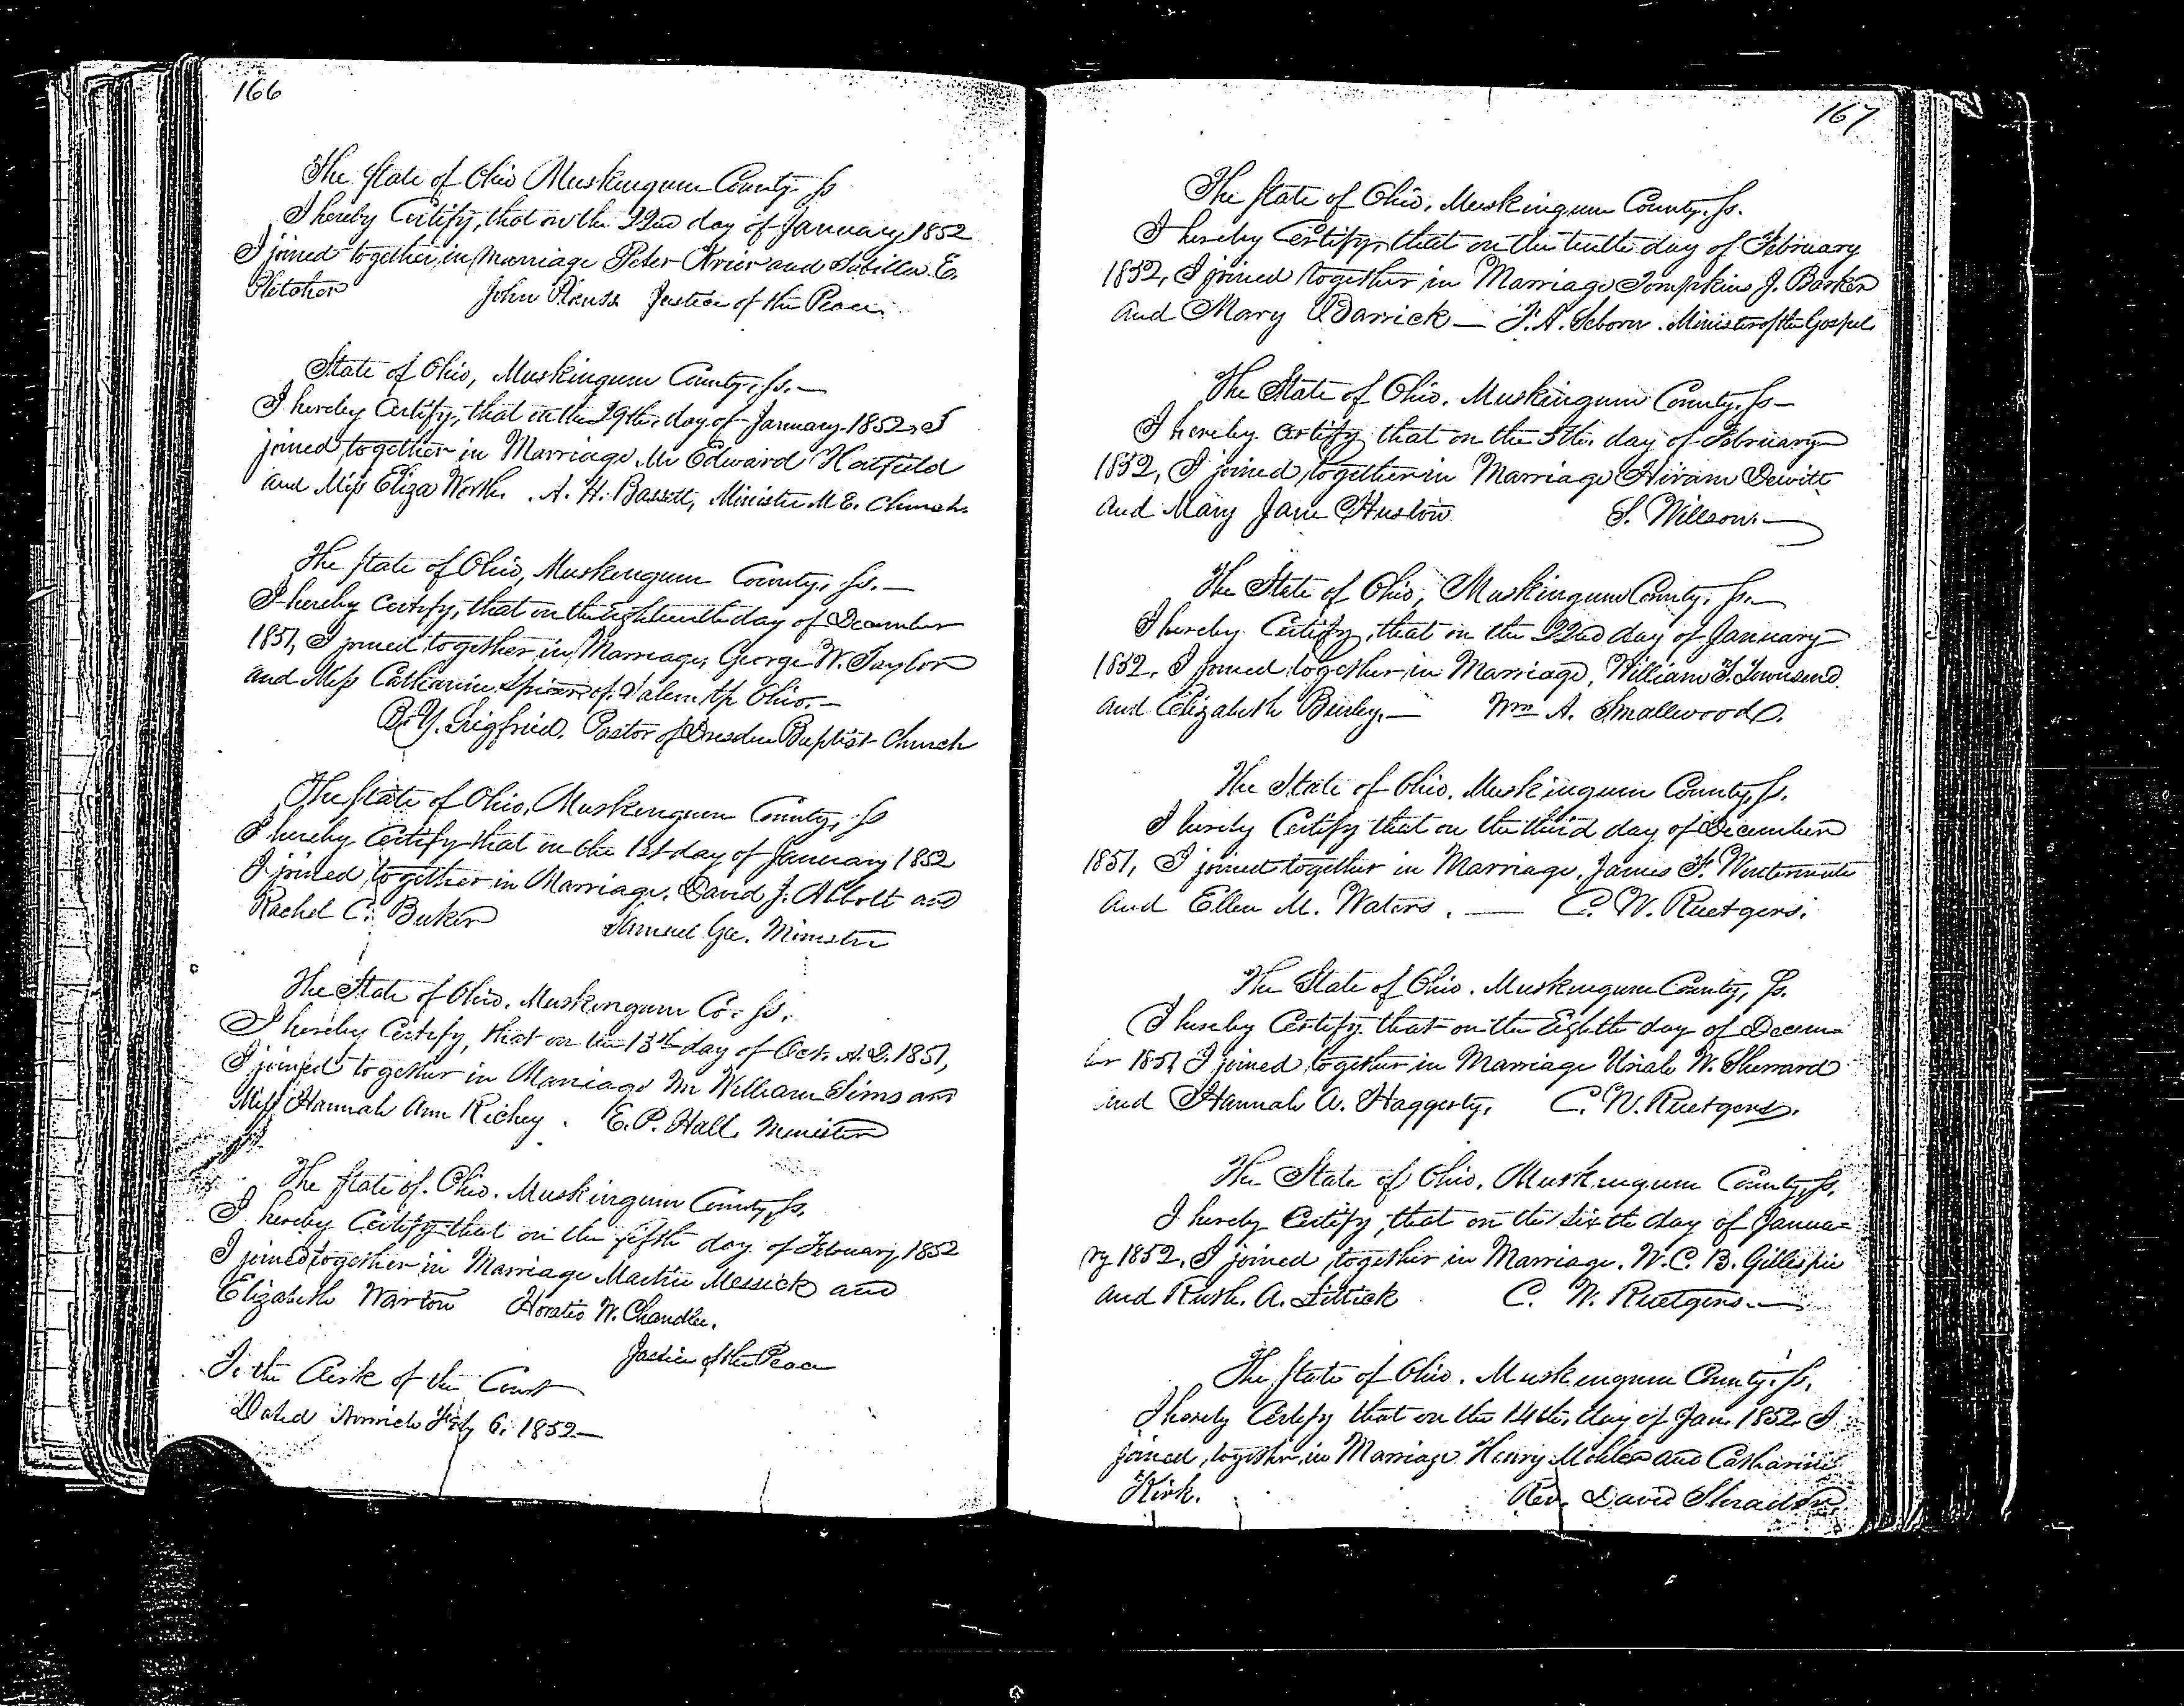 166
The State of Ohio Muskingum County Ss
I hereby Certify, that on the 22nd day of January 1852
I joined together, in Marriage Peter Krier and Sibilla E.
John Justice of the Peace
State of Ohio, Muskingum County, Ss.—
I hereby Certify, that on the 29th, day of January 1852, I
joined together in Marriage Mr Edward Hatfield
and Miss Eliza Worth. A. H. Bassett, Minister M. E. Church.
The State of Ohio, Muskingum County, Ss.—
I hereby Certify, that on the Eighteenth day of December
1851, I joined together in Marriage, George W. Taylor
and Miss Catharine Spicer of Salem tp Ohio.—
B. Y. Siegfried, Pastor of Dresden Baptist Church
The State of Ohio, Muskingum County, Ss
I hereby Certify that on the 1st day of January 1852
I joined together in Marriage, David J. Abbott and
Rachel C. Buker Samuel Gee, Minister
The State of Ohio, Muskingum Co. Ss.
I hereby Certify, that on the 13th day of Oct. A.D. 1851,
I joined together in Marriage Mr William Sims and
Miss Hannah Ann Richey. E. P. Hall, Minister
The State of Ohio, Muskingum County, Ss.
I hereby Certify that on the fifth day of February 1852
I joined together in Marriage Martin Messick and
Elizabeth Warton Horatio W. Chandler.
Justice of the Peace
To the Clerk of the Court
Dated Norwich Feby 6, 1852—
167
The State of Ohio, Muskingum County, Ss.
I hereby Certify, that on the tenth day of February
1852, I joined together in Marriage Tompkins J. Barker
and Mary — Minister of the Gospel
The State of Ohio, Muskingum County, Ss—
I hereby certify that on the 5th, day of February
1852, I joined together in Marriage Hiram Dewitt
and Mary Jane Huston S. Willson.—
The State of Ohio, Muskingum County, Ss.—
I hereby Certify, that on the 22nd day of January
1852, I joined together in Marriage, William T. Townsend
and Elizabeth — Wm A. Smallwood.
The State of Ohio, Muskingum County, Ss.
I hereby Certify that on the third day of December
1851, I joined together in Marriage, James F. Wintermute
and Ellen M. Waters. — C. W. Ruetgers.
The State of Ohio, Muskingum County, Ss.
I hereby Certify that on the Eighth day of Decem-
ber 1851 I joined together in Marriage Uriah W. Sherrard
and Hannah A. Haggerty. C. W. Ruetgers.
The State of Ohio, Muskingum County, Ss.
I hereby Certify, that on the sixth day of Janua-
ry 1852, I joined together in Marriage, W. C. B. Gillespie
and Ruth. A. Littick C. W. Ruetgers.—
The State of Ohio, Muskingum County, Ss.
I hereby Certify that on the 14th, day of Jan. 1852 I
joined together in Marriage Henry Mohler and Catharine
Kirk. Rev. David Shrader